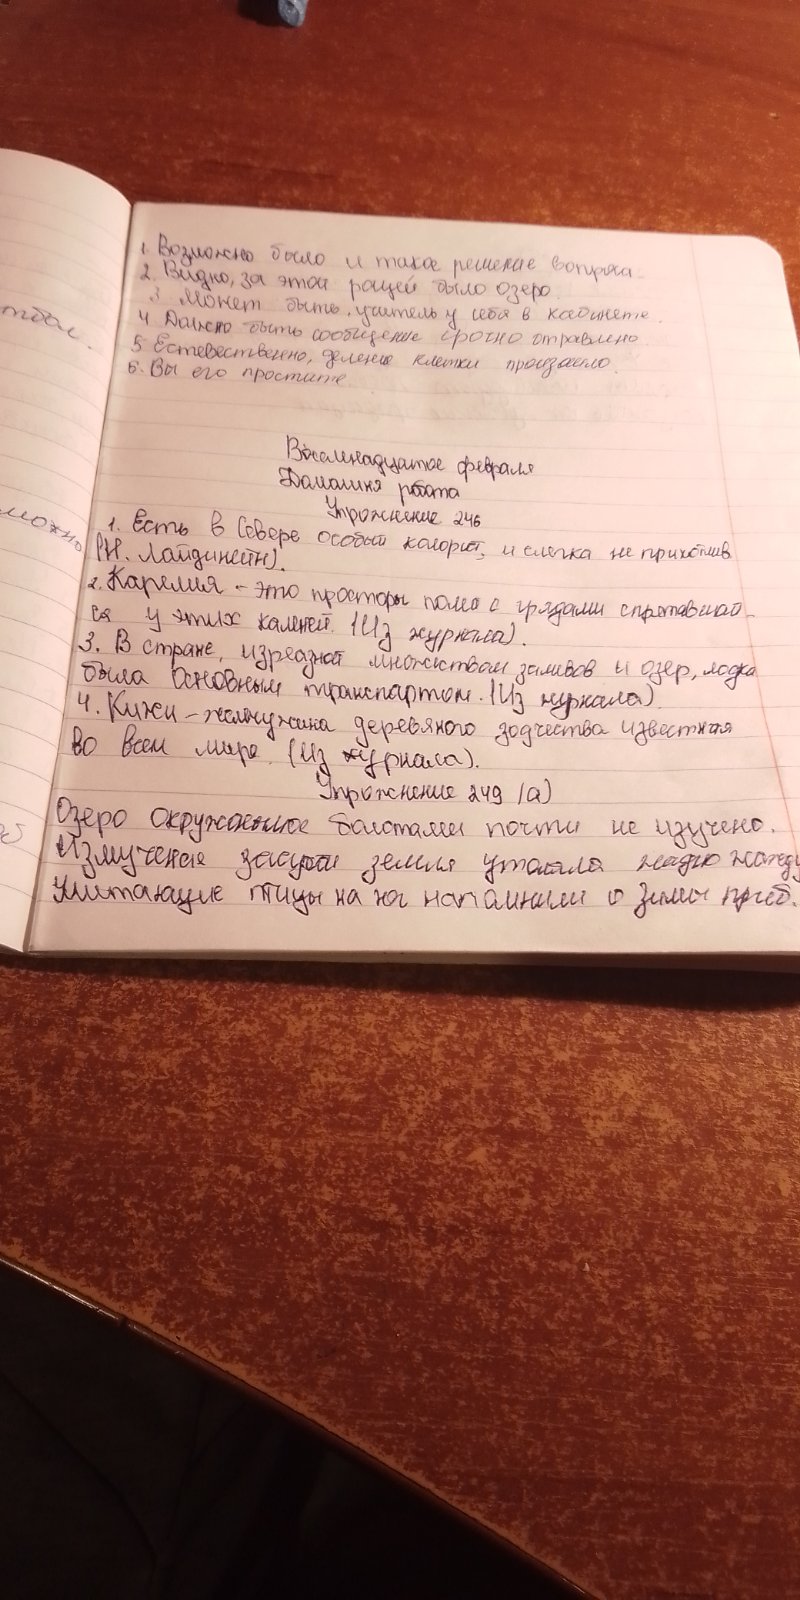 1. Возможно было и такое решение вопроса.
2. Видно, за этой рощей было озеро.
3. Может быть, учитель у себя в кабинете.
4 Должно быть сообщение срочно отправлено.
5 Естевественно, деление клетки произошло.
6. Вы его простите
тбол.
Восемнадцатое февраля
Домашня рбота
Упрожнение 246
можно
1. Есть в Севере особый колорит, и слегка не прихотлив
(Н. Лайдинейн).
2. Карелия - это просторы поля с грядами спрятавшай-
ся у этих камней. (Из журнала).
3. В стране, изрезаной множиством заливов и озер, лодка
была основным транспартом. (Из журкала).
4. Кижи - жемчужина деревяного зодчества известная
во всем мире. (Из журнала).
Упрожнение 249 (а)
Озеро окружонное болотами почти не изучено.
Измученая засухой земля утоляла жадно жажду
Улитающие птицы на юг напомнили о зимы приб.